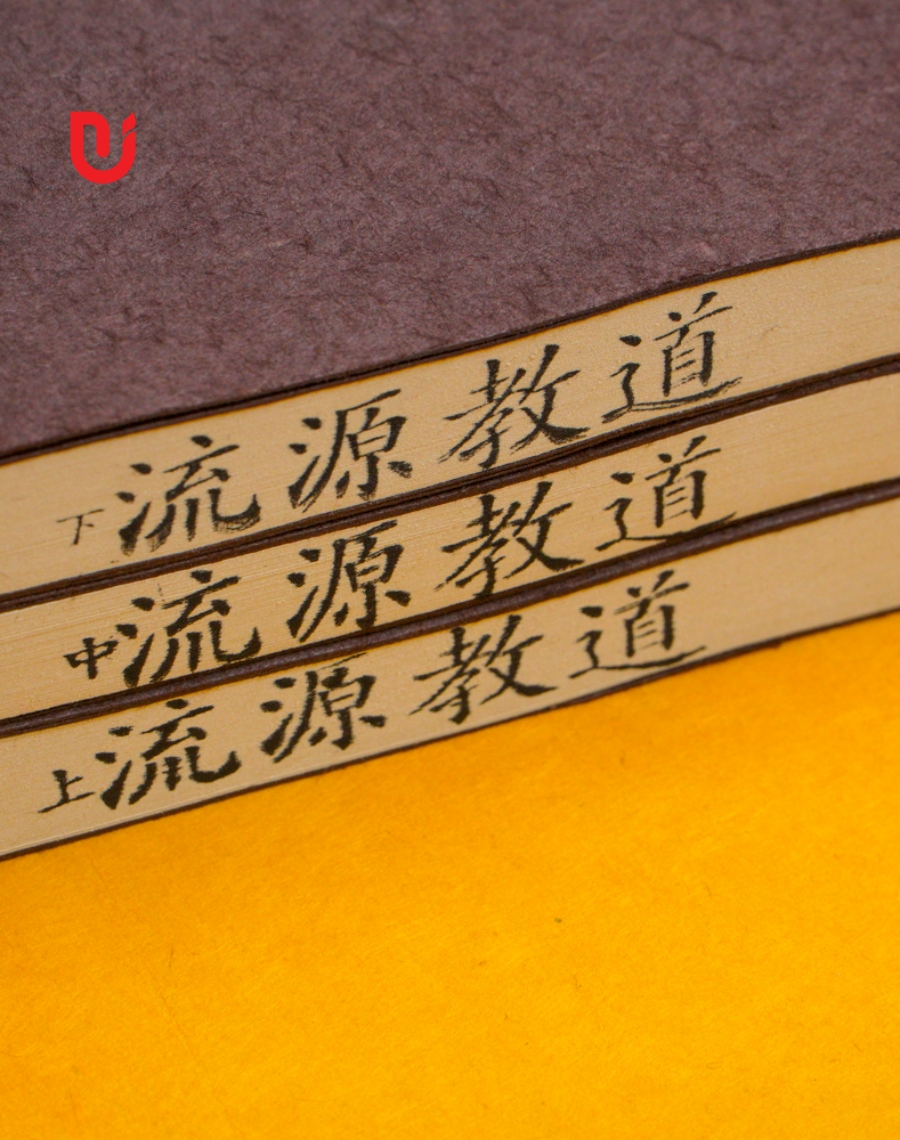 下流源教道
中流源教道
上流源教道